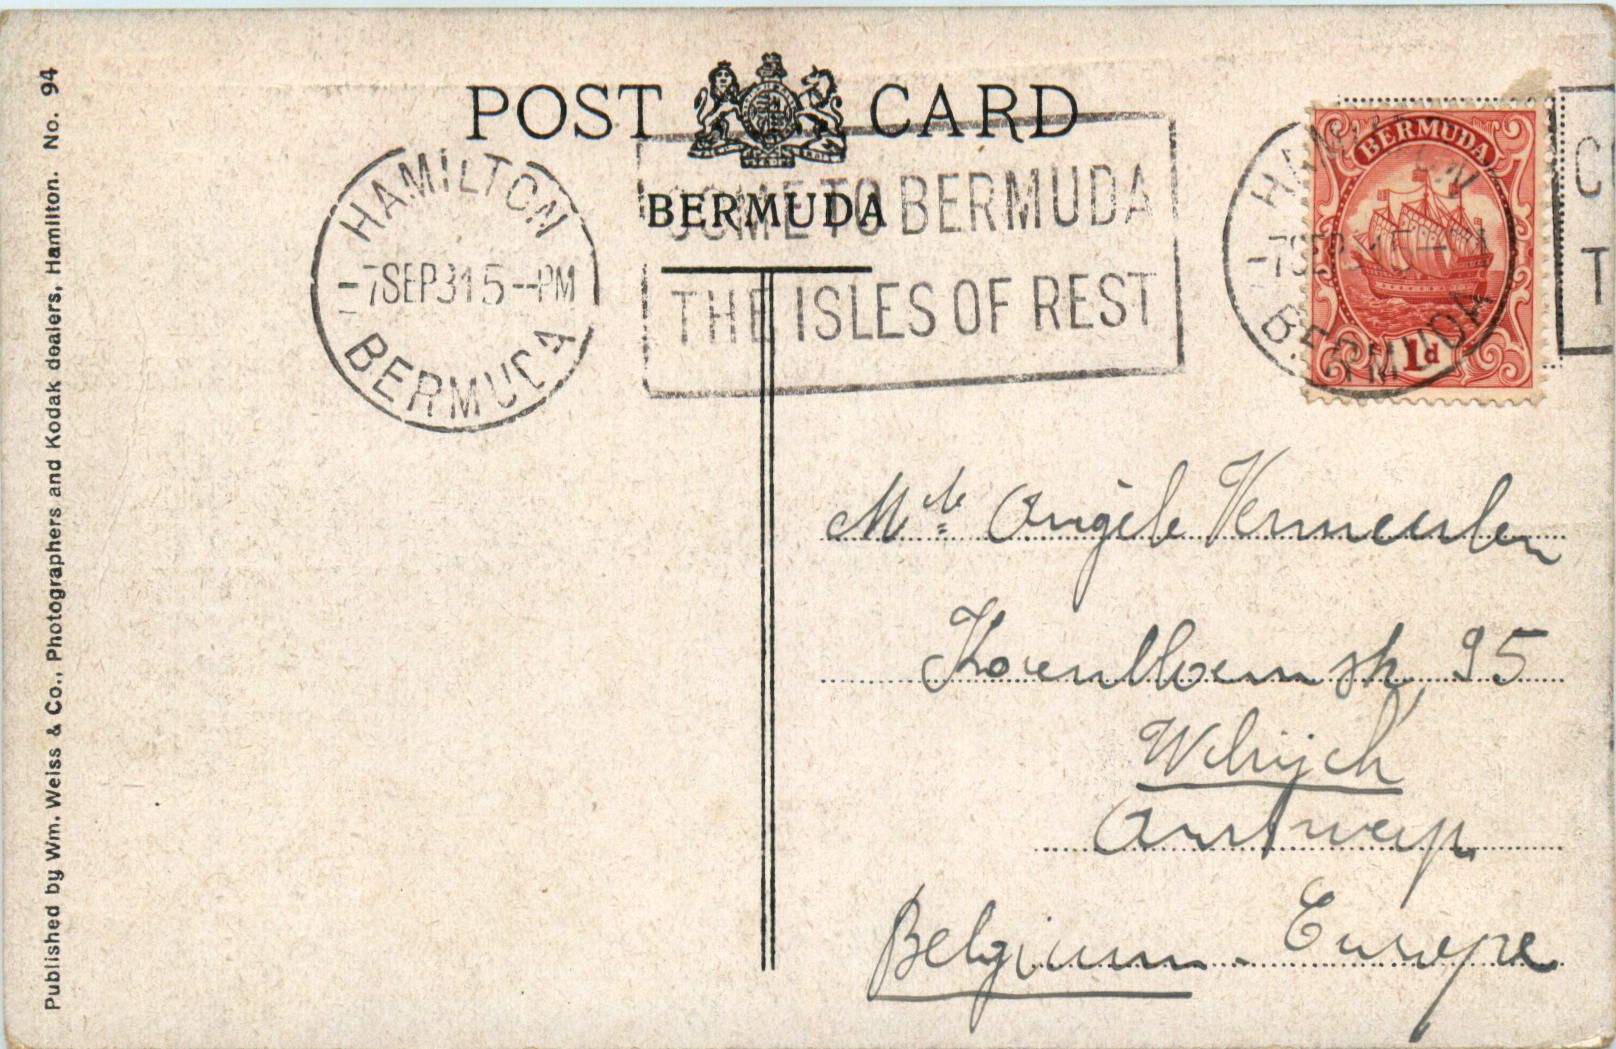 POST CARD
BERMUDA
HAMILTON
-7 SEP 31 5--PM
BERMUDA
COME TO BERMUDA
THE ISLES OF REST
HAMILTON
-7 SEP 31 5-
BERMUDA
BERMUDA
1d
C
T
Mlle Angèle Vermeulen
95
Wilrijck
Antwerp
Belgium - Europe
Published by Wm. Weiss & Co., Photographers and Kodak dealers, Hamilton. No. 94